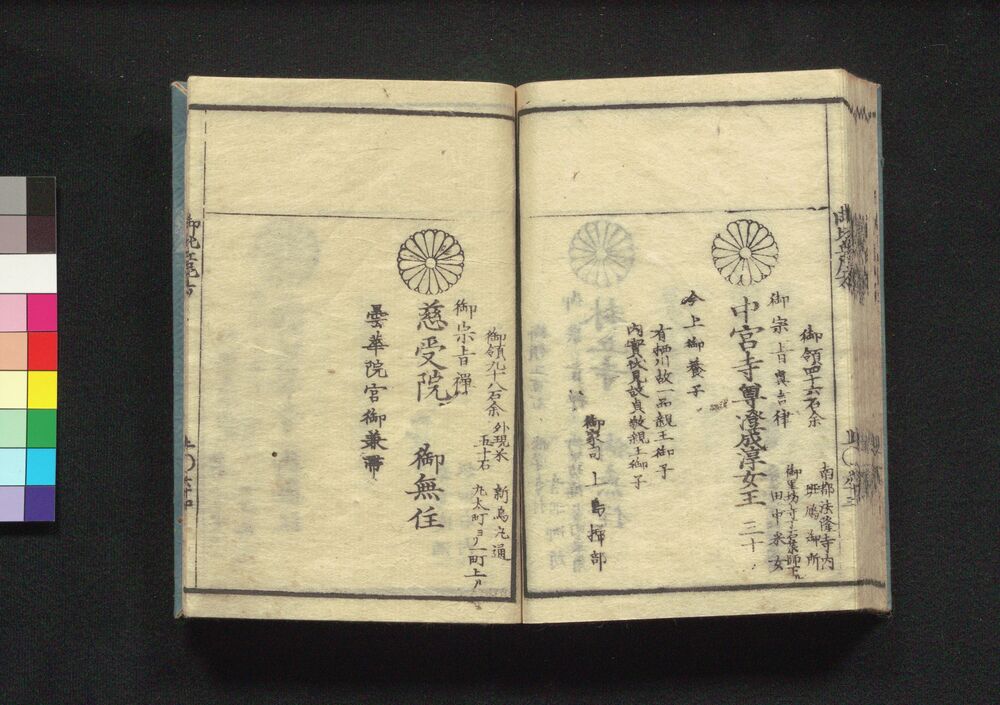 御領四十六石余
南都法隆寺内
斑鳩御所
田中采女
御宗旨真言律
中宮寺尊澄成淳女王 三十
今上御養子
有栖川故一品親王御子
内實伏見故貞敬親王御子
御家司 上島掃部
御領九十八石余
外現米
五十石
新烏丸通
丸太町ヨリ一町上ル
御宗旨禅
慈受院 御無住
曇華院宮御兼帯